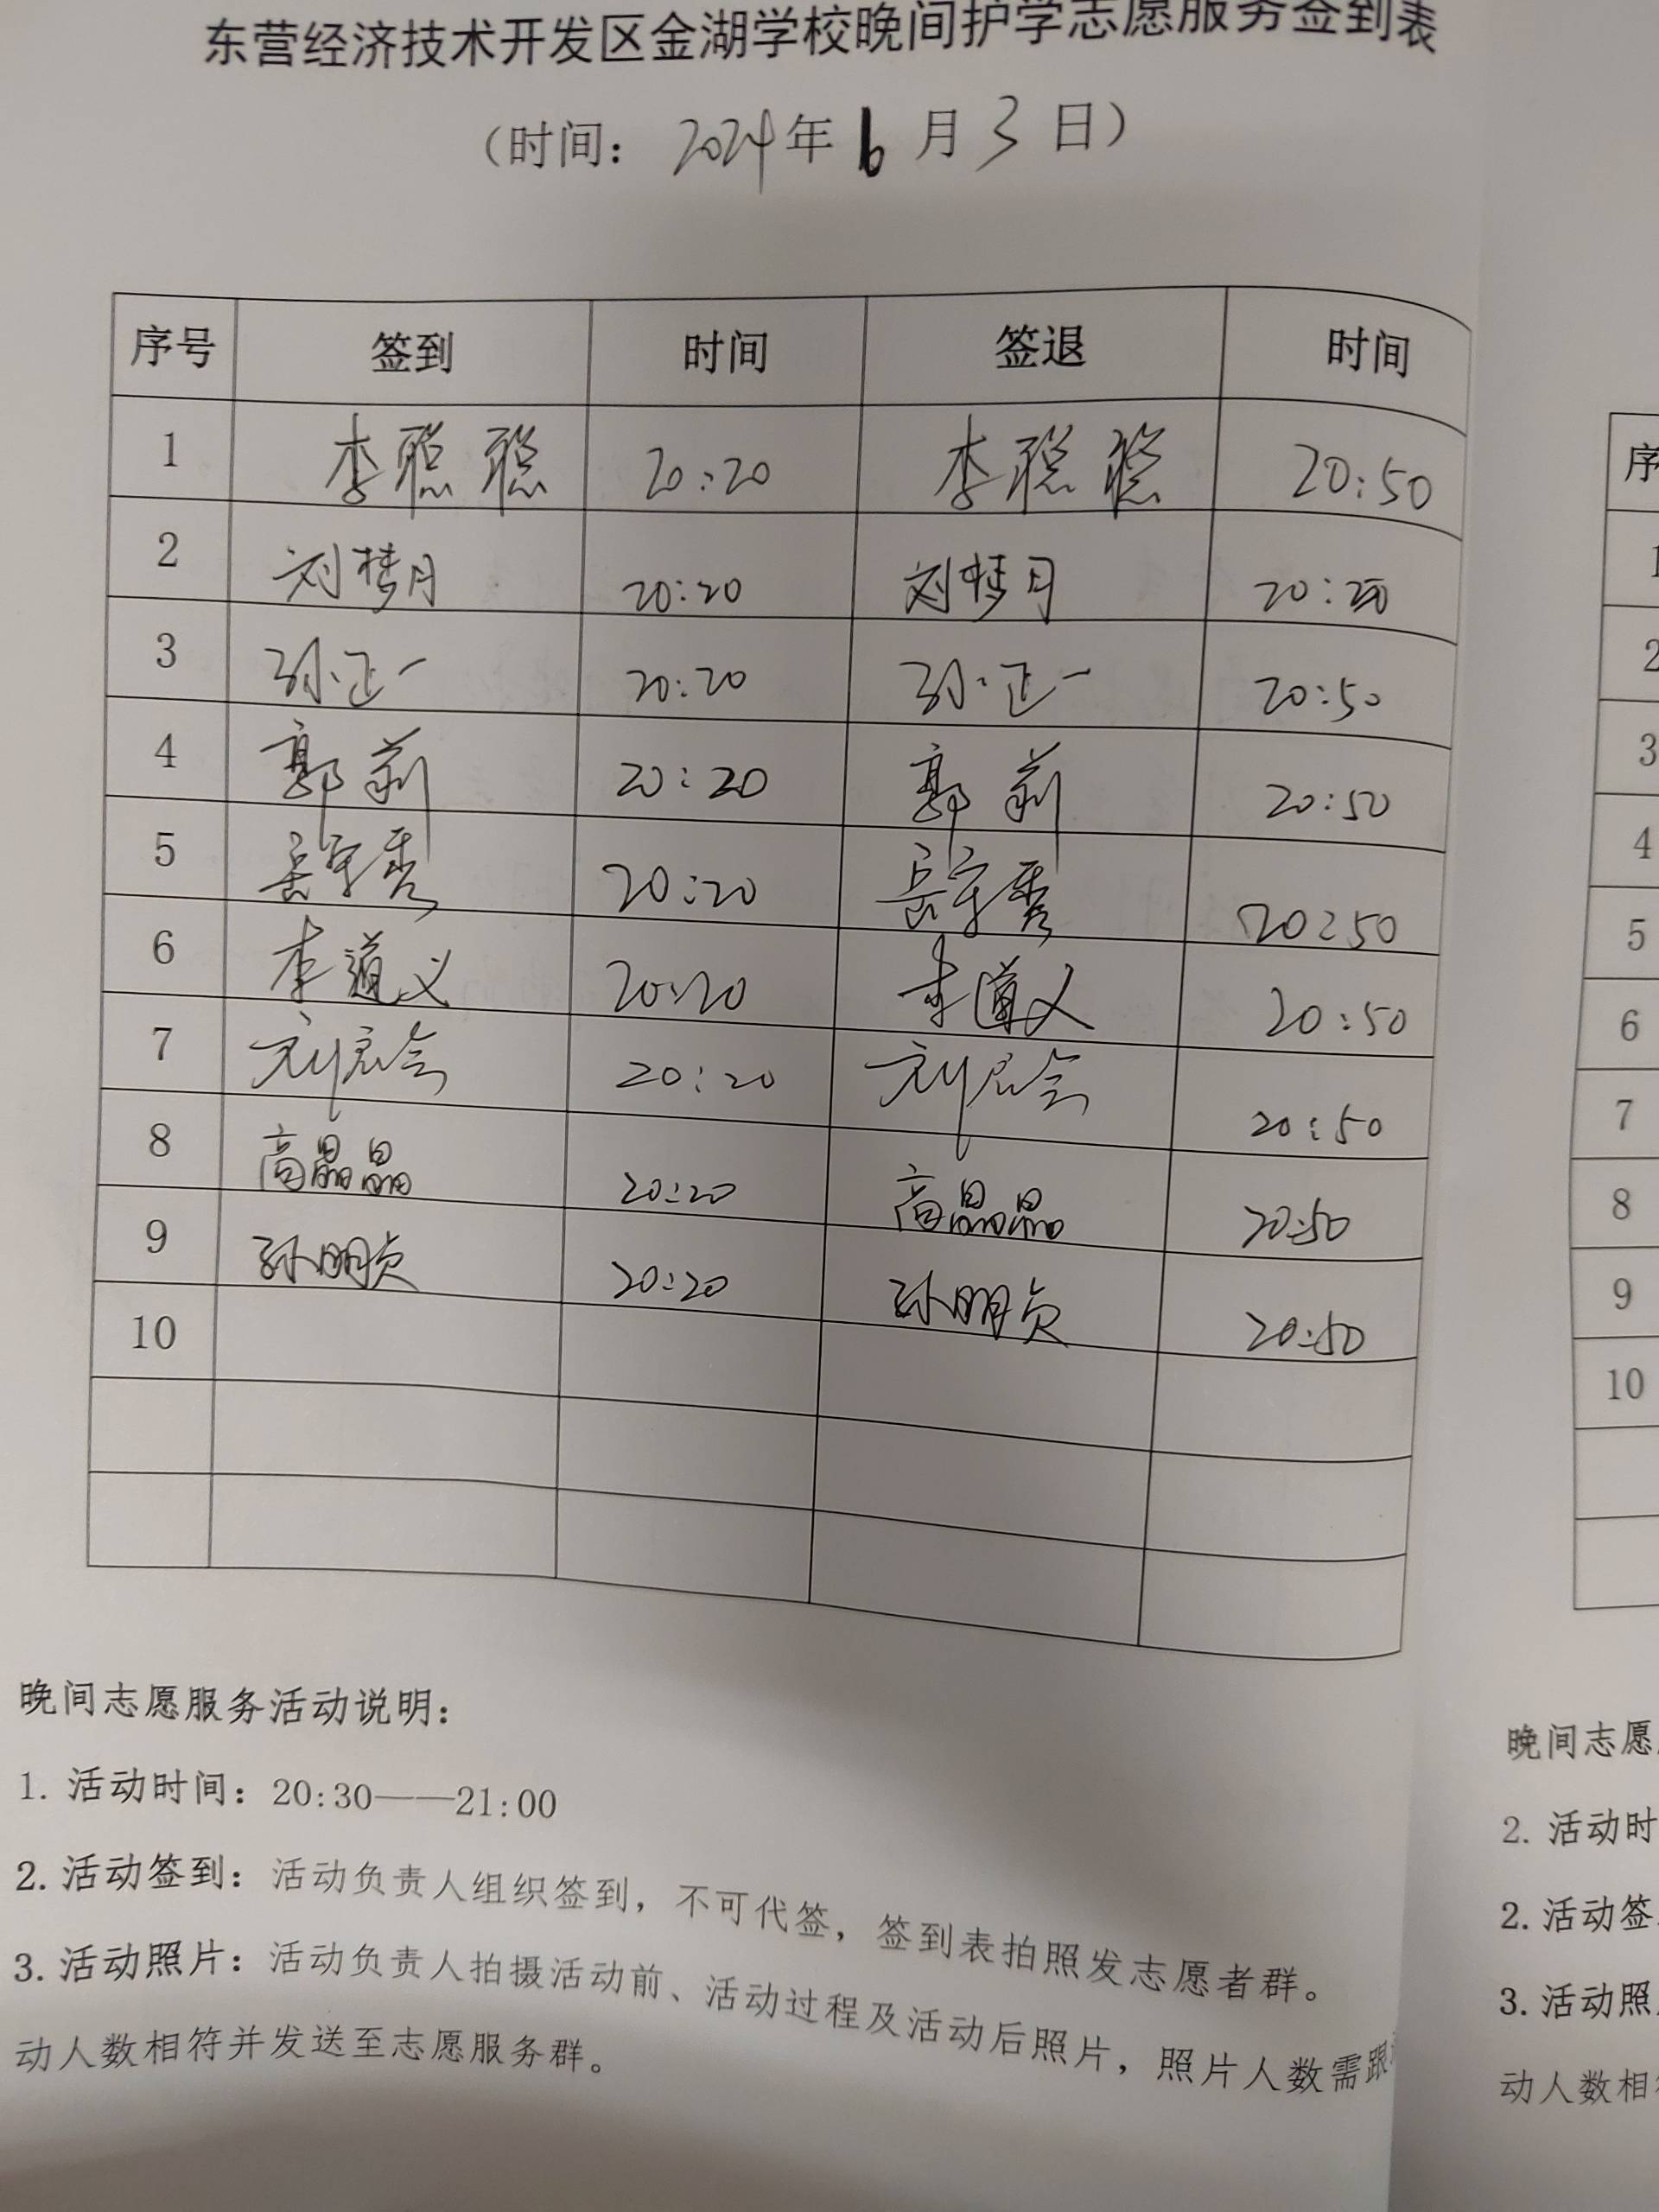 东营经济技术开发区金湖学校晚间护学志愿服务签到表
（时间：2024年6月3日）
序号 签到 时间 签退 时间
1 李聪聪 20:20 李聪聪 20:50
2 刘梦月 20:20 刘梦月
3 孙正一 20:20 孙正一 20:50
4 郭莉 20:20 郭莉 20:50
5 20:20 20:50
6 李道义 20:20 李道义 20:50
7 20:20 20:50
8 高晶晶 20:20 高晶晶 20:50
9 孙明贞 20:20 孙明贞 20:50
10
晚间志愿服务活动说明：
1. 活动时间：20:30——21:00
2. 活动签到：活动负责人组织签到，不可代签，签到表拍照发志愿者群。
3. 活动照片：活动负责人拍摄活动前、活动过程及活动后照片，照片人数需跟
动人数相符并发送至志愿服务群。
序
1
2
3
4
5
6
7
8
9
10
晚间志愿
2. 活动时
2. 活动签
3. 活动照
动人数相